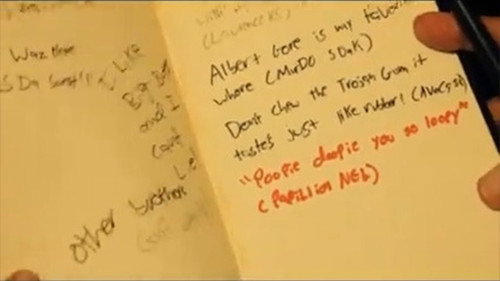 Waz Here
Like
Big Butt
and I
Cant
Lie
other brothers
(Lawrence KS)
Albert Gore is my favorite
whore (Murdo SDak)
Dont chew the Trojan Gum it
tastes just like rubber! (
"Poopie doopie you so loopy"
(Papillion NEb)